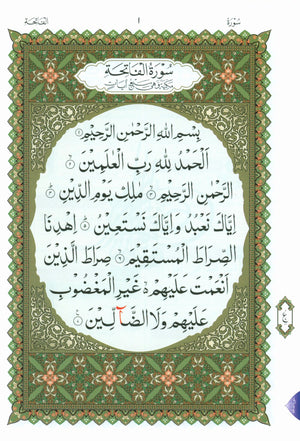 سُوْرَة ١ الفَاتِحَة
سُوْرَةُ الْفَاتِحَةِ
بِسْمِ اللهِ الرَّحْمٰنِ الرَّحِيْمِ
اَلْحَمْدُ لِلّٰهِ رَبِّ الْعٰلَمِيْنَ
الرَّحْمٰنِ الرَّحِيْمِ مٰلِكِ يَوْمِ الدِّيْنِ
اِيَّاكَ نَعْبُدُ وَاِيَّاكَ نَسْتَعِيْنُ اِهْدِنَا
الصِّرَاطَ الْمُسْتَقِيْمَ صِرَاطَ الَّذِيْنَ
اَنْعَمْتَ عَلَيْهِمْ غَيْرِ الْمَغْضُوْبِ
عَلَيْهِمْ وَلَا الضَّآلِّيْنَ